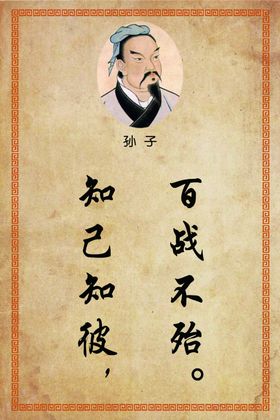 孙子
知己知彼，
百战不殆。